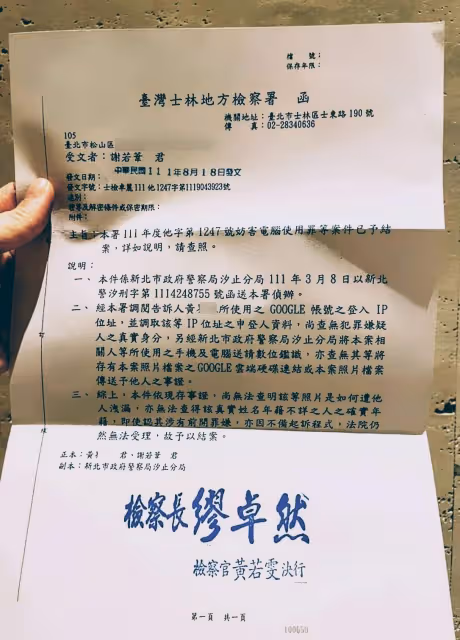 檔　號：
保存年限：
臺灣士林地方檢察署　函
機關地址：臺北市士林區士東路190號
傳　真：02-28340636
105
臺北市松山區
受文者：謝若葦　君
發文日期：中華民國111年8月18日發文
發文字號：士檢卓麗111他1247字第1119043923號
速別：
密等及解密條件或保密期限：
附件：
主旨：本署111年度他字第1247號妨害電腦使用罪等案件已予結
案，詳如說明，請查照。
說明：
一、本件係新北市政府警察局汐止分局111年3月8日以新北
警汐刑字第1114248755號函送本署偵辦。
二、經本署調閱告訴人黃 所使用之GOOGLE帳號之登入IP
位址，並調取該等IP位址之申登人資料，尚查無犯罪嫌疑
人之真實身分，另經新北市政府警察局汐止分局將本案相
關人等所使用之手機及電腦送請數位鑑識，亦查無其等將
存有本案照片檔案之GOOGLE雲端硬碟連結或本案照片檔案
傳送予他人之事證。
三、綜上，本件依現存事證，尚無法查明該等照片是如何遭他
人洩漏，亦無法查得該真實姓名年籍不詳之人之確實年
籍，即使認其涉有前開罪嫌，亦因不備起訴程式，法院仍
然無法受理，故予以結案。
正本：黃 君、謝若葦　君
副本：新北市政府警察局汐止分局
檢察長繆卓然
檢察官黃若雯決行
第一頁　共一頁